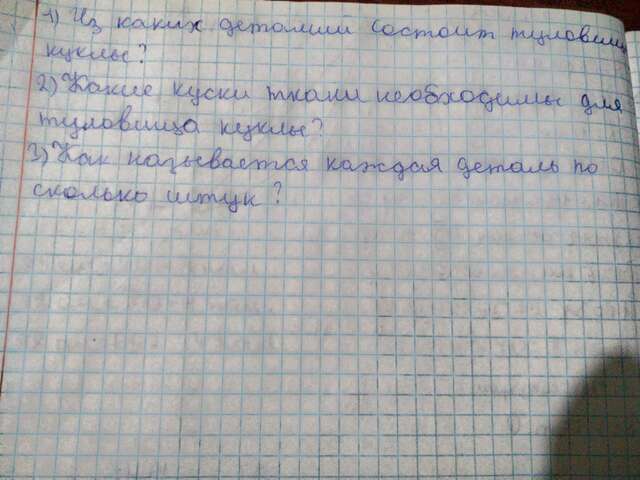 1) Из каких деталии состоит туловищ
куклы?
2) Какие куски ткани необходимы для
туловища куклы?
3) Как называется каждая деталь по
сколько штук?